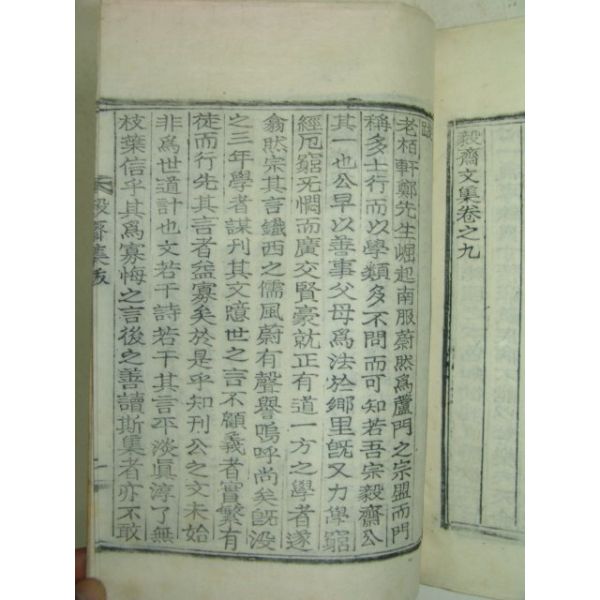 毅齋文集卷之九
跋
老栢軒鄭先生崛起南服蔚然爲蘆門之宗盟而門
稱多士行而以學類多不問而可知若吾宗毅齋公
其一也公早以善事父母爲法於鄕里旣又力學窮
經厄窮无憫而廣交賢豪就正有道一方之學者遂
翕然宗其言鐵西之儒風蔚有聲譽嗚呼尚矣旣没
之三年學者謀刊其文噫世之言不顧義者實繁有
徒而行先其言者益寡矣於是乎知刊公之文未始
非爲世道計也文若干詩若干其言平淡眞淳了無
枝葉信乎其爲寡悔之言後之善讀斯集者亦不敢
毅齋集跋
一